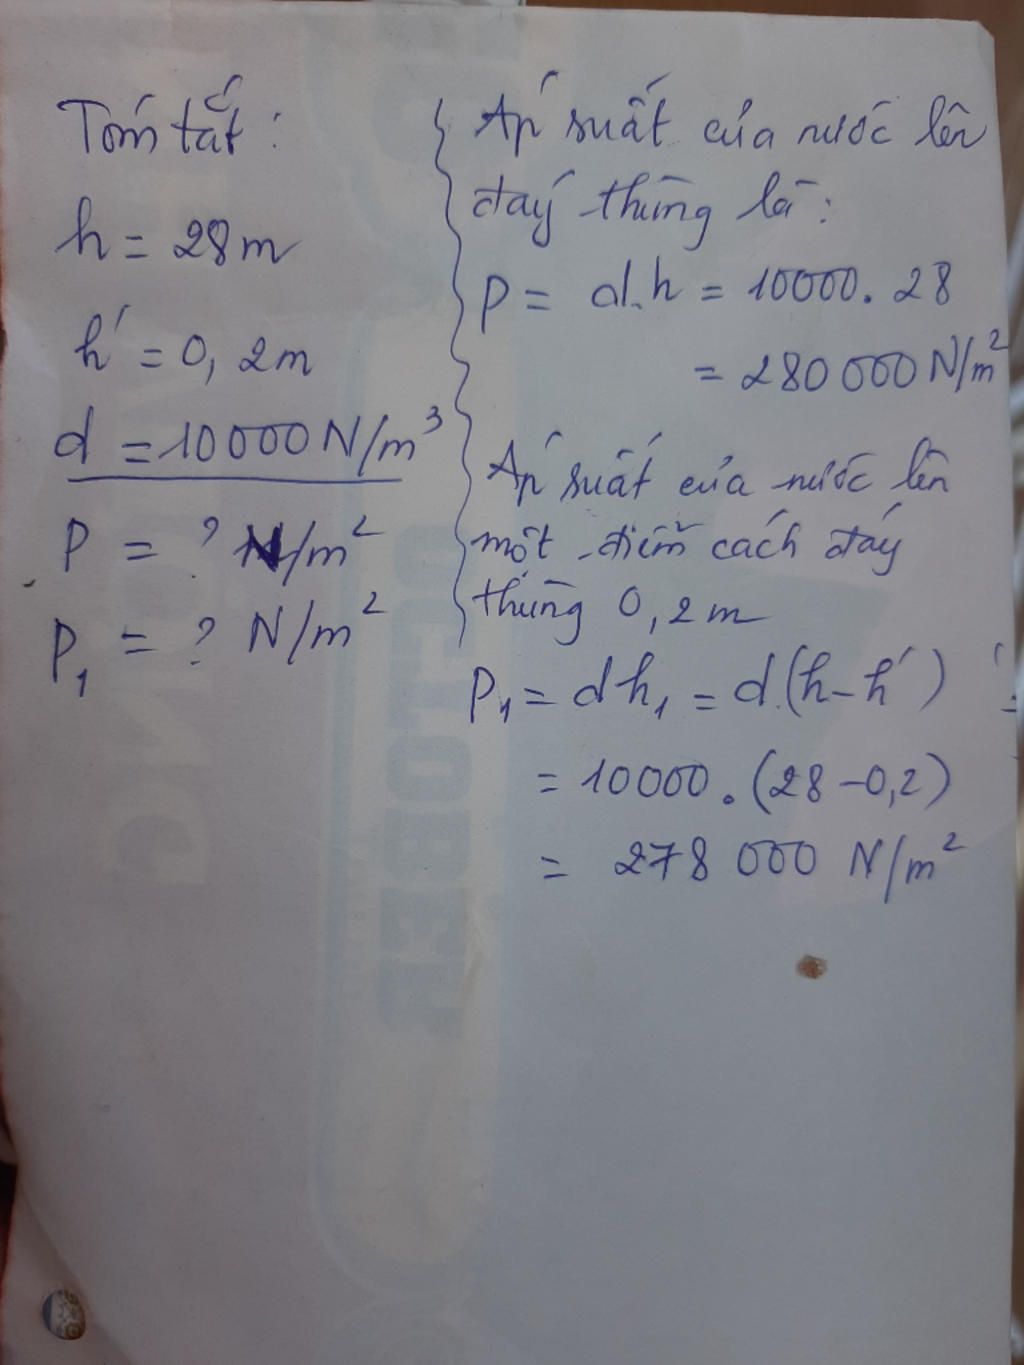 Tóm tắt:
h = 28m
h' = 0,2m
d = 10000N/m³
P = ? N/m²
P₁ = ? N/m²
Áp suất của nước lên
đáy thùng là:
P = d.h = 10000.28
= 280 000 N/m²
Áp suất của nước lên
một điểm cách đáy
thùng 0,2m
P₁ = dh₁ = d.(h-h')
= 10000.(28-0,2)
= 278 000 N/m²
OCTOBER